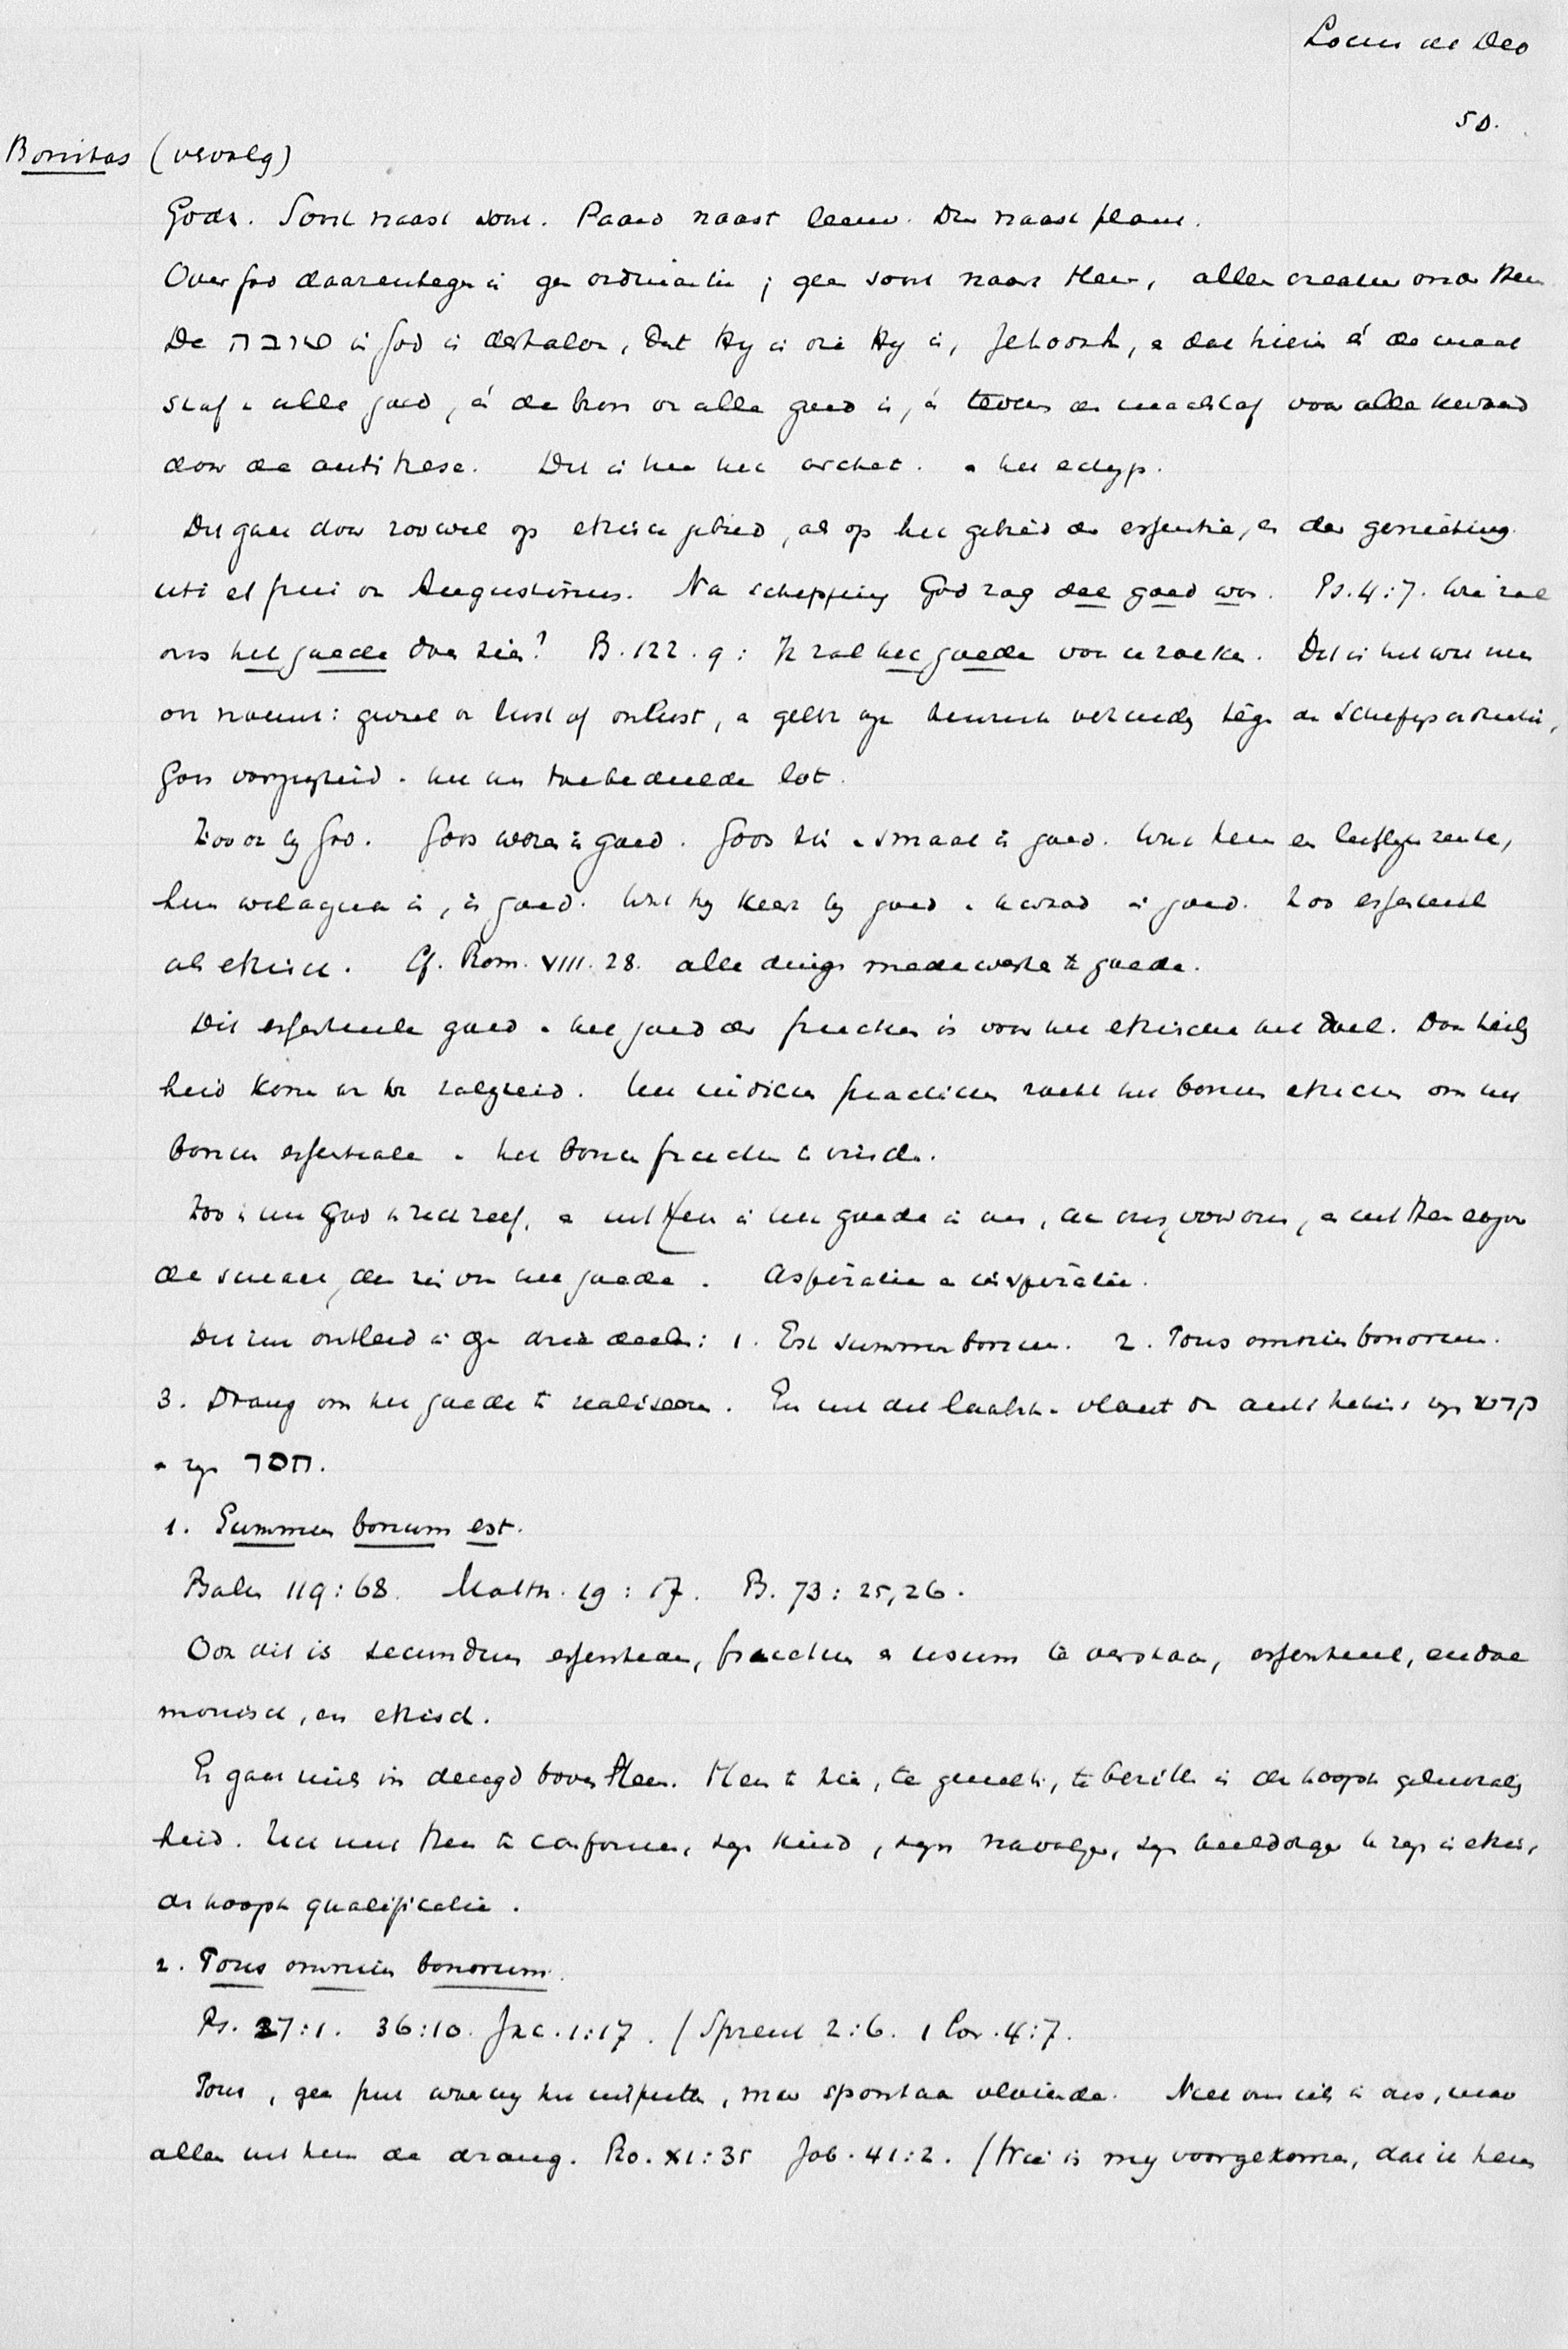 Locus de Deo
50.
Bonitas (vervolg)
Gods. Soort naast soort. Paard naast leeuw. Dier naast plant.
Over God daarentegen is geen ordinantie; geen soort naast Hem, alle creatuur onder Hem
De טובה in God is derhalve, dat Hy is die Hy is, Jehovah, en dat hierin én de maat
staf van alle goed, én de bron van alle goed is, én tevens de maatstaf voor alle kwaad
door de antithese. Dit is het archet. en het ectyp.
Dit gaat door zoowel op ethisch gebied, als op het gebied der essentie, en der genieting
uti et frui van Augustinus. Na schepping God zag dat goed was. Ps. 4:7. Wie zal
ons het goede doen zien? Ps. 122.9: Ik zal het goede voor u zoeken. Dit is het wat men
noemt: gevoel van lust of onlust,
Gods voorzienigheid en het ons toebedeelde lot.
Zoo ook by God. Gods wezen is goed. Gods zin en smaak is goed. Wat hem een lieflyke reuke,
hem welaangenaam is, is goed. Wat hy keurt by goed en kwaad is goed. Zoo essentieel
als ethisch. Cf. Rom. VIII. 28. alle dingen medewerken ten goede.
Dit essentieele goed en het goed der fruitie is voor het ethische het doel. Door heilig
heid komen we tot zaligheid. Het iudicium practicum zoekt het bonum ethicum om het
bonum essentiale en het bonum te vinden.
Zoo is nu God in zich zelf, en uit Hem is het goede in ons, aan ons, voor ons, en uit Hem
de smaak, de zin van het goede. Aspiratie en inspiratie.
Dit nu ontleed in drie deelen: 1. Est summum bonum. 2. Fons omnium bonorum.
3. Drang om het goede te realiseeren. En uit dit laatste vloeit dan antithetisch zyn קדש
en zyn חסד.
1. Summum bonum est.
Psalm 119:68. Matth. 19:17. Ps. 73:25,26.
Ook dit is secundum essentiam, fructum en usum te verstaan, essentieel, eudae
monisch, en ethisch.
Er gaat niets in deugd boven Hem. Hem te zien, te genieten, te bezitten is de hoogste gelukzalig
heid. Zich met Hem te conformeeren, zyn kind, zyn navolger, zyn beelddrager te zyn is ethisch
de hoogste qualificatie.
2. Fons omnium bonorum.
Ps. 27:1. 36:10. Jac. 1:17. / Spreuk 2:6. 1 Cor. 4:7.
Fons, geen put waaruit wy het uitputten, maar spontaan vloeiende. Niet om iets in ons, maar
alleen uit hem de drang. Ro. XI:35 Job. 41:2. / Wie is my voorgekomen, dat ik hem